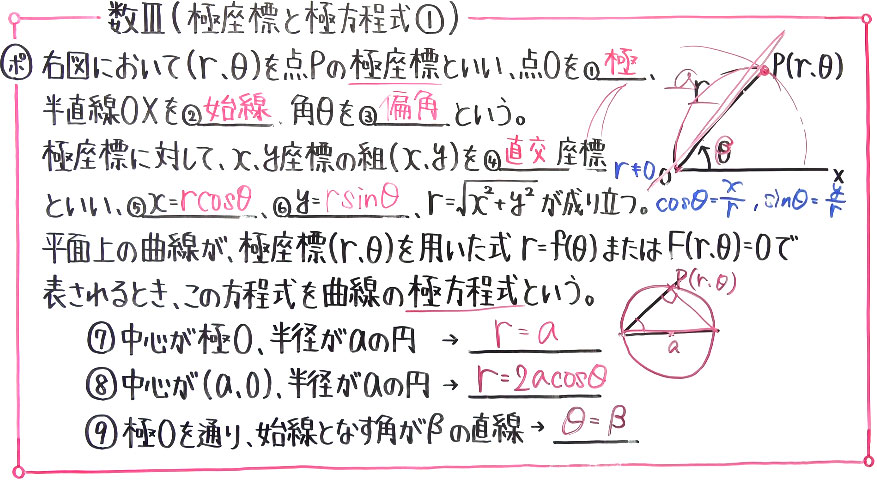 数Ⅲ(極座標と極方程式①)
ポ 右図において(r、θ)を点Pの極座標といい、点Oを①極、
半直線OXを②始線、角θを③偏角という。
極座標に対して、x、y座標の組(x、y)を④直交座標
といい、⑤x=rcosθ、⑥y=rsinθ、r=√x²+y² が成り立つ。
平面上の曲線が、極座標(r、θ)を用いた式 r=f(θ)またはF(r、θ)=0で
表されるとき、この方程式を曲線の極方程式という。
⑦中心が極O、半径がaの円 → r=a
⑧中心が(a、0)、半径がaの円 → r=2acosθ
⑨極Oを通り、始線となす角がβの直線→ θ=β
P(r、θ)
a
r
θ
O
X
r≠0
cosθ=x/r , sinθ=y/r
P(r、θ)
a